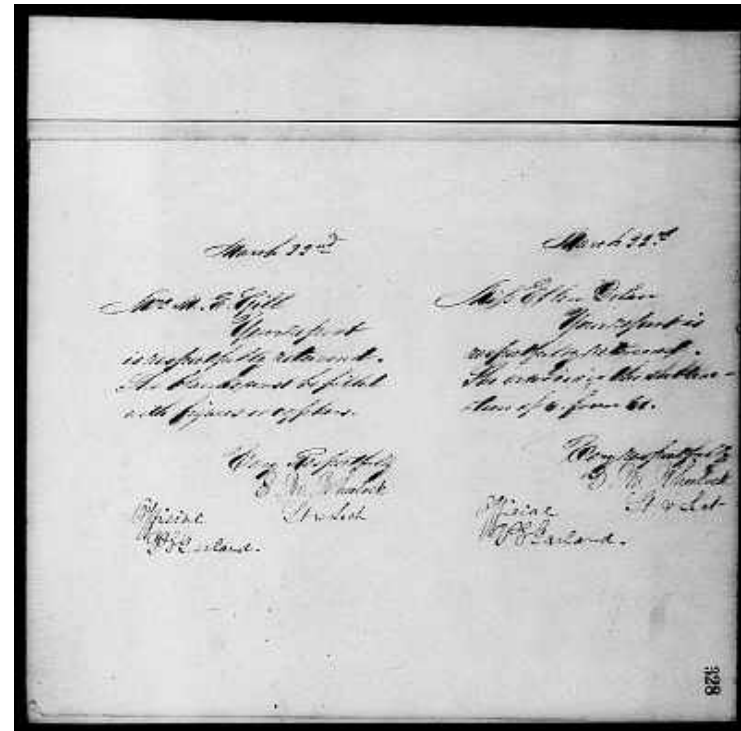 March 22nd
Mrs M. E. Gill
Your report
is respectfully returned.
The blanks must be filled
with figures or cyphers.
Very Respectfully
E M Wheelock
Lt & Sect
Official
W S Garland.
March 22d
Miss Ellen Dolan
Your report is
respectfully returned.
The error is in the subtrac-
tion of 6 from 61.
Very respectfully
E M Wheelock
Lt & Sect
Official
W S Garland.
328